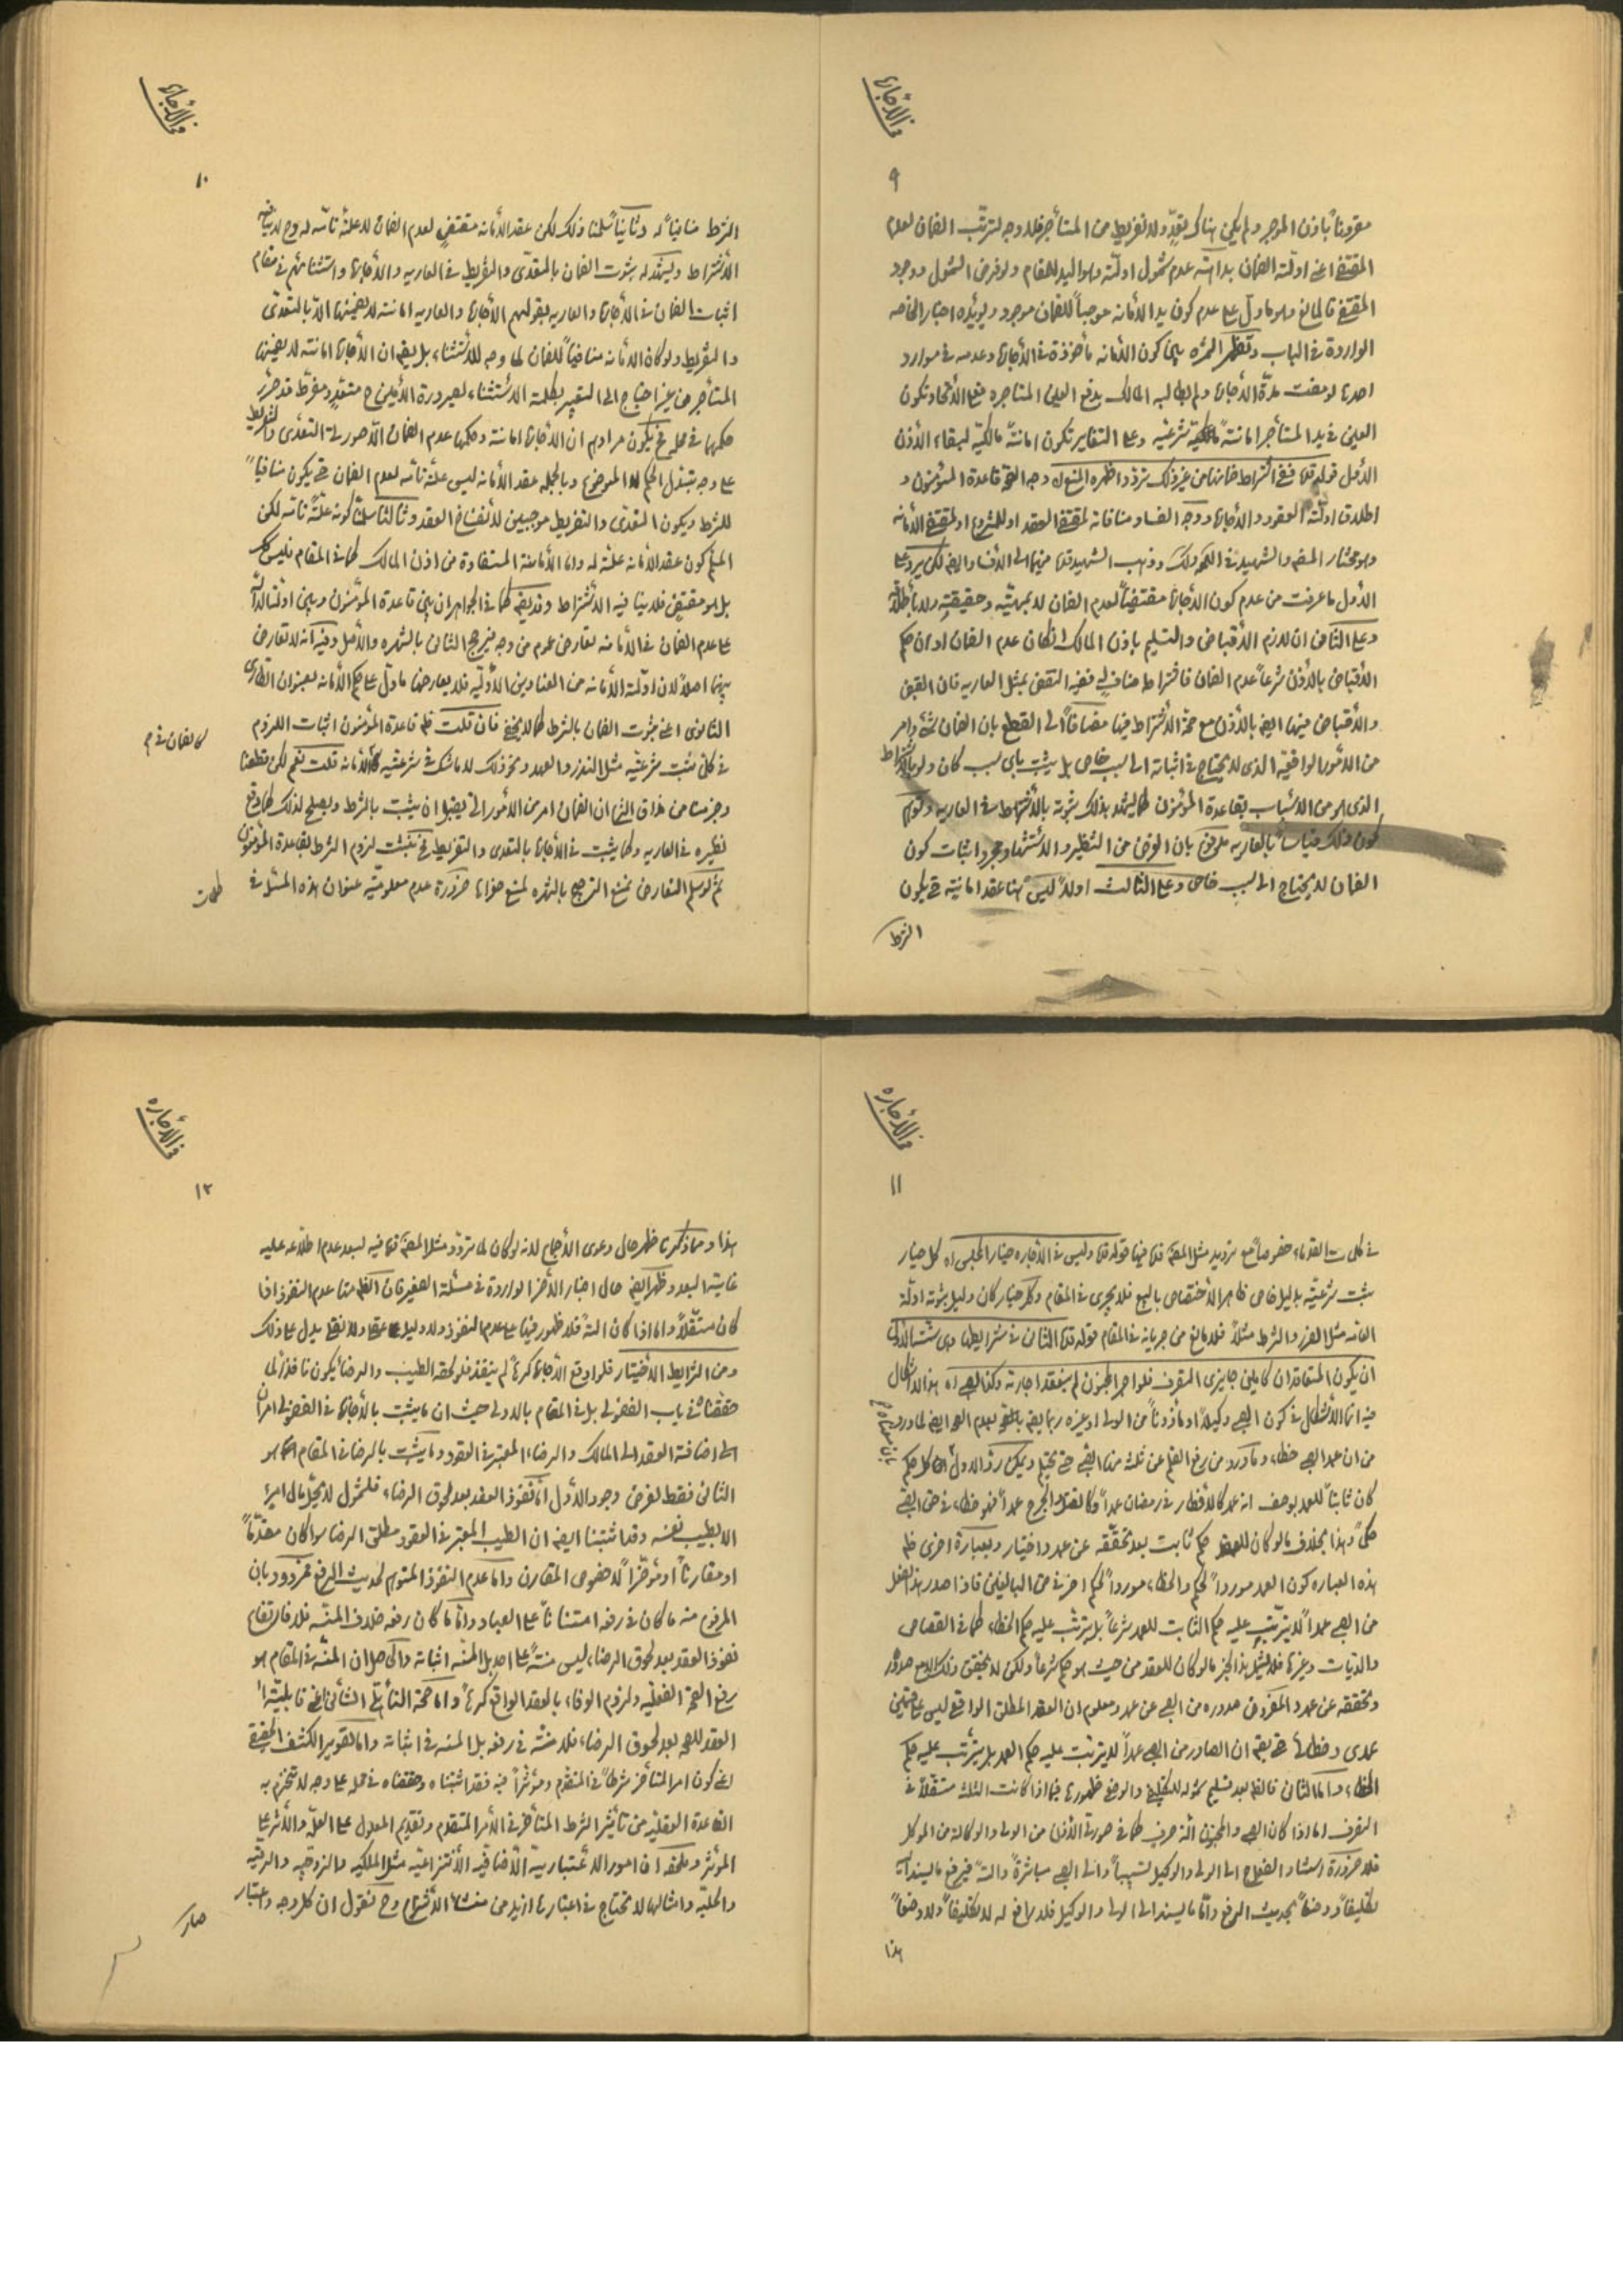 في الأجارة
٩
مقروناً باذن الموجر ولم يكن هناك تعدّ ولا تفريط من المستأجر فلا وجه لترتّب الضمان لعدم
المقتضى اعنى ادلّة الضمان بداهة عدم شمول ادلّة اليد للمقام ولو فرض الشمول ووجود
المقتضى فالمانع وهو ما دلّ على عدم كون يد الأمانه موجباً للضمان موجود ويؤيّده اخبار الخاصه
الواردة في الباب وتظهر الثمره بين كون الأمانه مأخوذة في الأجارة وعدمه في موارد
احدها لو مضت مدّة الأجارة ولم يطالبه المالك بدفع العين المستاجره فعلى الأتحاد تكون
العين في يد المستأجر امانةً شرعيّه وعلى التغاير تكون امانةً مالكيّه لبقاء الأذن
الأول قوله قده ففى اشتراط ضمانها من غير ذلك تردّد اظهره المنع اه وجه الصحّة قاعدة المؤمنون و
اطلاق ادلّة العقود والأجارة ووجه الفساد منافاته لمقتضى العقد او للمشروع او لمقتضى الأمانه
وهو مختار المصنف والشهيد في اللمعه وذهب الشهيد قده منهما الى الأفساد ايضا لكن يرد على
الأول ما عرفت من عدم كون الأجارة مقتضياً لعدم الضمان لا بمهيّته وحقيقته ولا باطلاقه
وعلى الثانى ان لازم الأقباض والتسليم باذن المالك ان كان عدم الضمان او ان حكم
الأقباض بالأذن شرعاً عدم الضمان فاشتراطه مناف له ففيه النقض بمثل العاريه فان القبض
والأقباض فيها ايضا بالأذن مع صحّة الأشتراط فيها مضافاً الى القطع بان الضمان شئ وامر
من الأمور الواقعيّه الذى لا يحتاج في اثباته الى سبب خاص بل يثبت باى سبب كان ولو بالأشتراط
الذى هو من الأسباب بقاعدة المؤمنون كما يشهد بذلك ثبوته بالأشتراط في العاريه وتوهم
كون ذلك قياساً بالعاريه مدفوع بان الغرض من التنظير والأستشهاد مجرد اثبات كون
الضمان لا يحتاج الى سبب خاص وعلى الثالث اولاً ليس هنا عقد امانيّة حتى يكون
الشرط
في الأجارة
١٠
الشرط منافياً له وثانياً سلّمنا ذلك لكن عقد الأمانه مقتضٍ لعدم الضمان لا علّة تامّه له وح لا ينافيه
الأشتراط ويشهد له ثبوت الضمان بالتعدّى والتفريط في العاريه والأجارة واستثنائهم في مقام
اثبات الضمان في الأجارة والعاريه بقولهم الأجارة والعاريه امانة لا يضمنها الّا بالتعدّى
والتفريط ولو كان الأمانه منافياً للضمان لما وجه للأستثناء بل يقه ان الأجارة امانة لا يضمنها
المستأجر من غير احتياج الى التعبير بكلمة الأستثناء لصيرورة الأمين ح متعدّ ومفرّط قد حرّر
حكمها في محله فح يكون مرادهم ان الأجارة امانة وحكمها عدم الضمان الّا صورة التعدّى والتفريط
على وجه تبدّل الحكم لا الموضوع وبالجمله عقد الأمانه ليس علّة تامّه لعدم الضمان حتى يكون منافياً
للشرط ويكون التعدّى والتفريط موجبين لأنفساخ العقد وثالثاً سلّمنا كونه علّةً تامّه لكن
المسلّم كون عقد الأمانه علّة له واما الأمانة المستفادة من اذن المالك كما في المقام فليس كك
بل هو مقتضٍ فلا ينافيه الأشتراط وقد يقه كما في الجواهر ان بين قاعدة المؤمنون وبين ادلّة الدالّة
على عدم الضمان في الأمانه تعارض عموم من وجه فيرجح الثانى بالشهره والأصل وفيه انه لا تعارض
بينهما اصلاً لان ادلّة الأمانه من العناوين الأوليّه فلا يعارضها ما دلّ على حكم الأمانه بعنوان الطارى
الثانوى اعنى ثبوت الضمان بالشرط كما لا يخفى فان قلت نعم قاعدة المؤمنون اثبات اللزوم
في كل مثبت شرعيّه مثل النذر والعهد ونحو ذلك لا ما شك في شرعيّته كالأمانه قلت نعم لكن قطعنا
كالضمان في م
وجزمنا من مذاق الش ان الضمان امر من الأمور التى يقبل ان يثبت بالشرط ويصلح لذلك كما وقع
نظيره في العاريه وكما يثبت في الأجارة بالتعدى والتفريط فح يثبت لزوم الشرط بقاعدة المؤمنون
ثم لو سلّم التعارض نمنع الترجيح بالشهره لمنع صغراها ضرورة عدم معلوميّة عنوان هذه المسئلة في
كلمات
في الأجاره
١١
في كلمات القدماء خصوصاً مع ترديد مثل المصنف قده فيها قوله قده وليس في الأجاره خيار المجلس اه كل خيار
يثبت شرعيّته بدليل خاص ظاهر الأختصاص بالبيع فلا يجرى في المقام وكل خيار كان دليل ثبوته ادلّة
العامه مثل الضرر والشرط مثلاً فلا مانع من جريانه في المقام قوله قده الثانى في شرايطها وهى ستّة الأول
ان يكون المتعاقدان كاملين جايزى التصرف فلو اجر المجنون لم ينعقد اجارته وكذا الصبى اه هذا لا اشكال
فيه انما الأشكال في كون الصبى وكيلاً او مأذوناً من الولى او غيره ربما يقه بعدم الصحه ايضا لما ورد
من ان عمد الصبى خطاء وما ورد من رفع القلم عن ثلثه منها الصبى حتى يحتلم ويمكن ردّ الأول ان كل حكم
كان ثابتاً للعمد بوصف انه عمد كالأفطار في رمضان عمداً وكالقتل والجرح عمداً فهو خطاء في حق الصبى
حكماً وهذا بخلاف ما لو كان للعقد حكم ثابت بعد تحقّقه عن عمد واختيار وبعبارة اخرى ظه
هذه العباره كون العمد مورداً لحكم والخطاء مورداً لحكم اخر في حق البالغين فاذا صدر هذا الفعل
من الصبى عمداً لا يترتّب عليه حكم الثابت للعمد شرعاً بل يترتّب عليه حكم الخطاء كما في القصاص
والديات وغيرها فلا يشمل هذا الخبر ما لو كان للعقد من حيث هو حكم شرعاً ولكن لا يتحقق ذلك الا مع صدوره
وتحققه عن عمد والمفروض صدوره من الصبى عن عمد ومعلوم ان العقد المطلق الواقع ليس على قسمين
عمدى وخطائى حتى يقه ان الصادر من الصبى عمداً لا يترتب عليه حكم العمد بل يترتّب عليه حكم
الخطاء واما الثانى فالظه بعد تسليم شموله للتكليف والوضع ظهورها فيما اذا كانت الثلثه مستقلاً في
التصرف اما اذا كان الصبى والمجنون الة صرف كما في صورة الأذن من الولى والوكالة من الموكل
فلا ضرورة استناد الفعل ح الى الولى والوكيل تسبيباً والى الصبى مباشرةً والةً فيرفع ما يسند اليه
تكليفاً ووضعاً بحديث الرفع وامّا ما يسند الى الولى والوكيل فلا رافع له لا تكليفاً ولا وضعاً
هذا
في الأجاره
١٢
هذا ومما ذكرنا ظهر حال دعوى الأجماع لانه لو كان لما تردّد مثل المصنف قده فيه لبعد عدم اطلاعه عليه
غاية البعد وظهر ايضا حال اخبار الأخر الواردة في مسئلة الصغير فان الظه منها عدم النفوذ اذا
كان مستقلاً واما اذا كان الةً فلا ظهور فيها على عدم النفوذ ولا دليل عقلا ولا نقلا يدل على ذلك
ومن الشرايط الأختيار فلو اوقع الأجارة كرهاً لم ينفذ فلو لحقه الطيب والرضا يكون نافذاً لما
حققناه في باب الفضولى بل في المقام بالأولى حيث ان ما يثبت بالأجازة في الفضولى امران
الى اضافة العقد الى المالك والرضاء المعتبر في العقود وما يثبت بالرضا في المقام انما هو
الثانى فقط لفرض وجود الأول امّا نفوذ العقد بعد لحوق الرضاء فلشمول لا يحلّ مال امرئ
الا بطيب نفسه وقد اثبتنا ايضا ان الطيب المعتبر في العقود مطلق الرضا سواء كان مقدّماً
او مقارناً او مؤخّراً لا خصوص المقارن واما عدم النفوذ المتوهم لحديث الرفع فمردود بان
المرفوع منه ما كان في رفعه امتناناً على العباد وامّا ما كان رفعه خلاف المنّه فلا فارتفاع
نفوذ العقد بعد لحوق الرضاء ليس منّةً على احد بل المنّه اثباته والحاصل ان المنّة في المقام هو
رفع الصحّة الفعليّه ولزوم الوفاء بالعقد الواقع كرهاً واما صحّة التأهّلى الشأنى اعنى قابليّة
العقد للصحه بعد لحوق الرضاء فلا منّة في رفعه بل المنه في اثباته واما تصوير الكشف الحقيقى
اعنى كون امر المتأخر شرطاً في المتقدّم ومؤثراً فيه فقد اثبتناه وحققناه في محله على وجه لا تنخرم به
القاعدة العقليّه من تأثير الشرط المتأخر في الأمر المتقدم وتقديم المعلول على العلّة والأثر على
المؤثر وملخصه ان امور الأعتبارية الأضافيه الأنتزاعيّه مثل الملكيه والزوجيه والرقيّه
والحليّه وامثالها لا تحتاج في اعتبارها ازيد من منشاء الأنتزاع وح نقول ان كل وجه واعتبار
صار